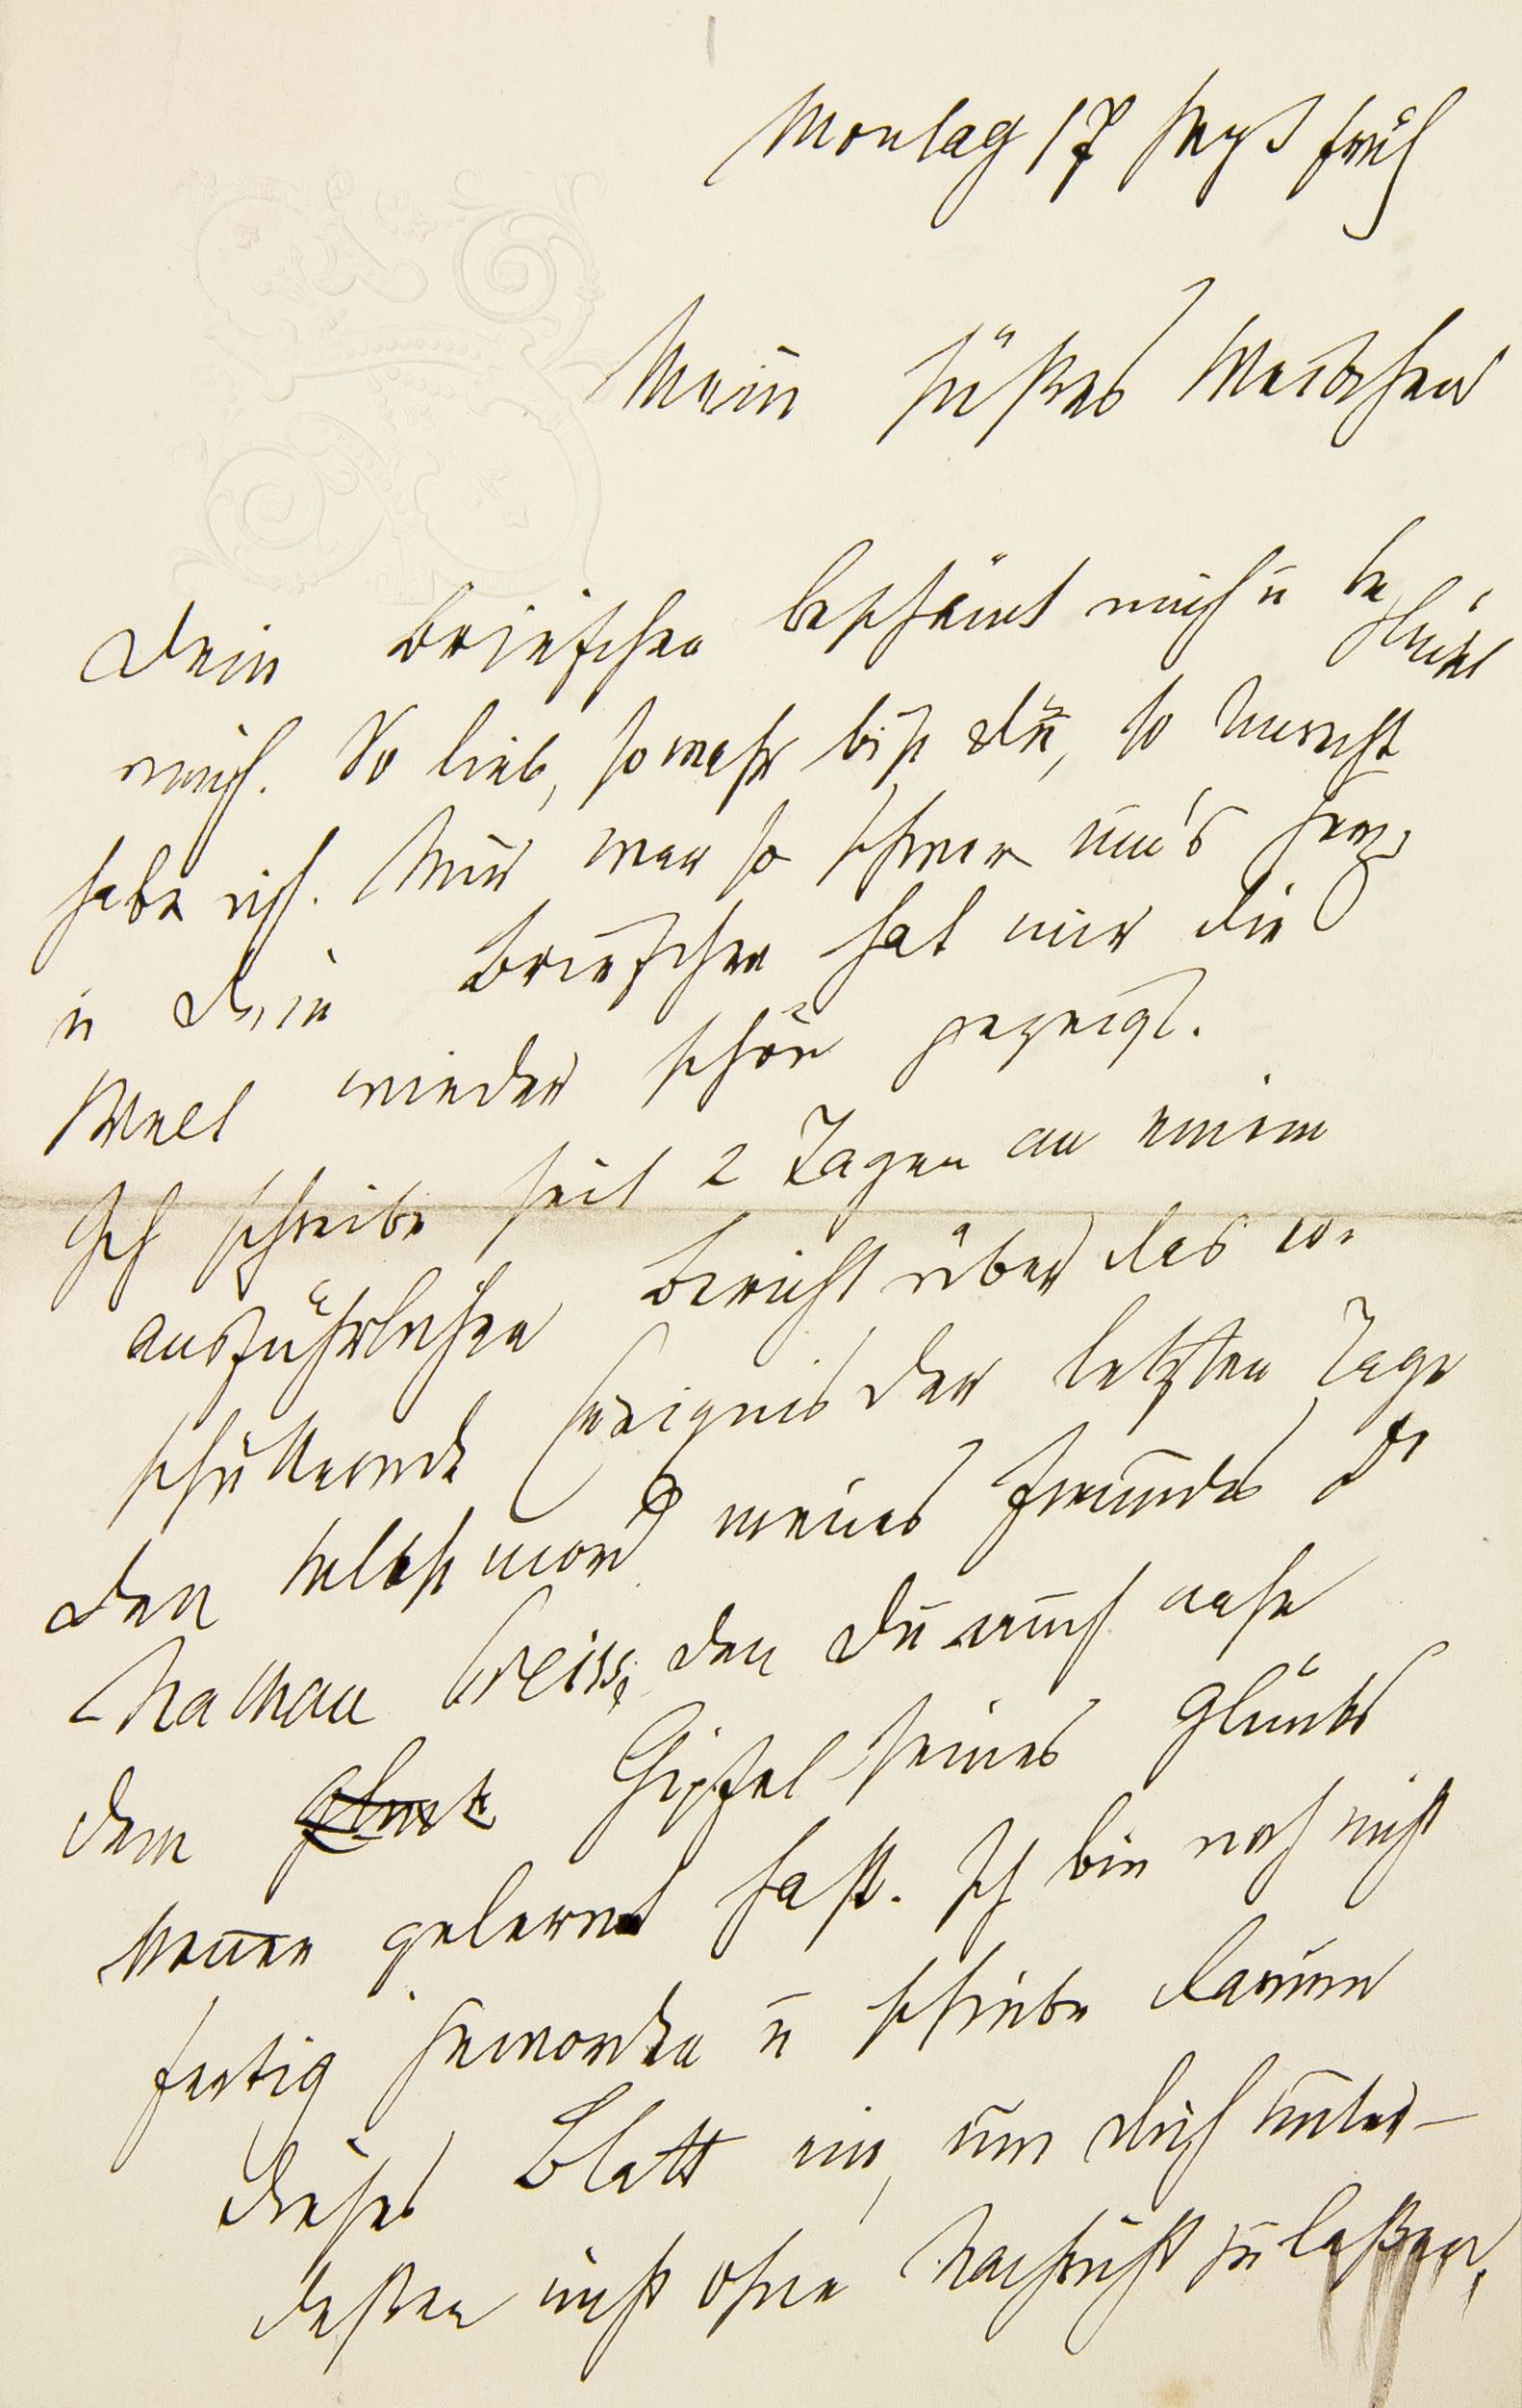 Montag 17 Sept früh
Mein süßes Weibchen
Dein Briefchen beschämt mich u beglückt
mich. So lieb, so wahr bist Du, so Unrecht
habe ich. Mir war so schwer um's Herz
u Dein Briefchen hat mir die
Welt wieder schön gezeigt.
Ich schreibe seit 2 Tagen an einem
ausführlichen Bericht über das er-
schütternde Ereignis der letzten Tage
den Selbstmord meines Freundes Dr
Nathan Weiss, den Du auch nahe
dem Gipfel seines Glücks
kennen gelernt hast. Ich bin noch nicht
fertig geworden u schiebe darum
dieses Blatt ein, um Dich unter-
dessen nicht ohne Nachricht zu laßen,